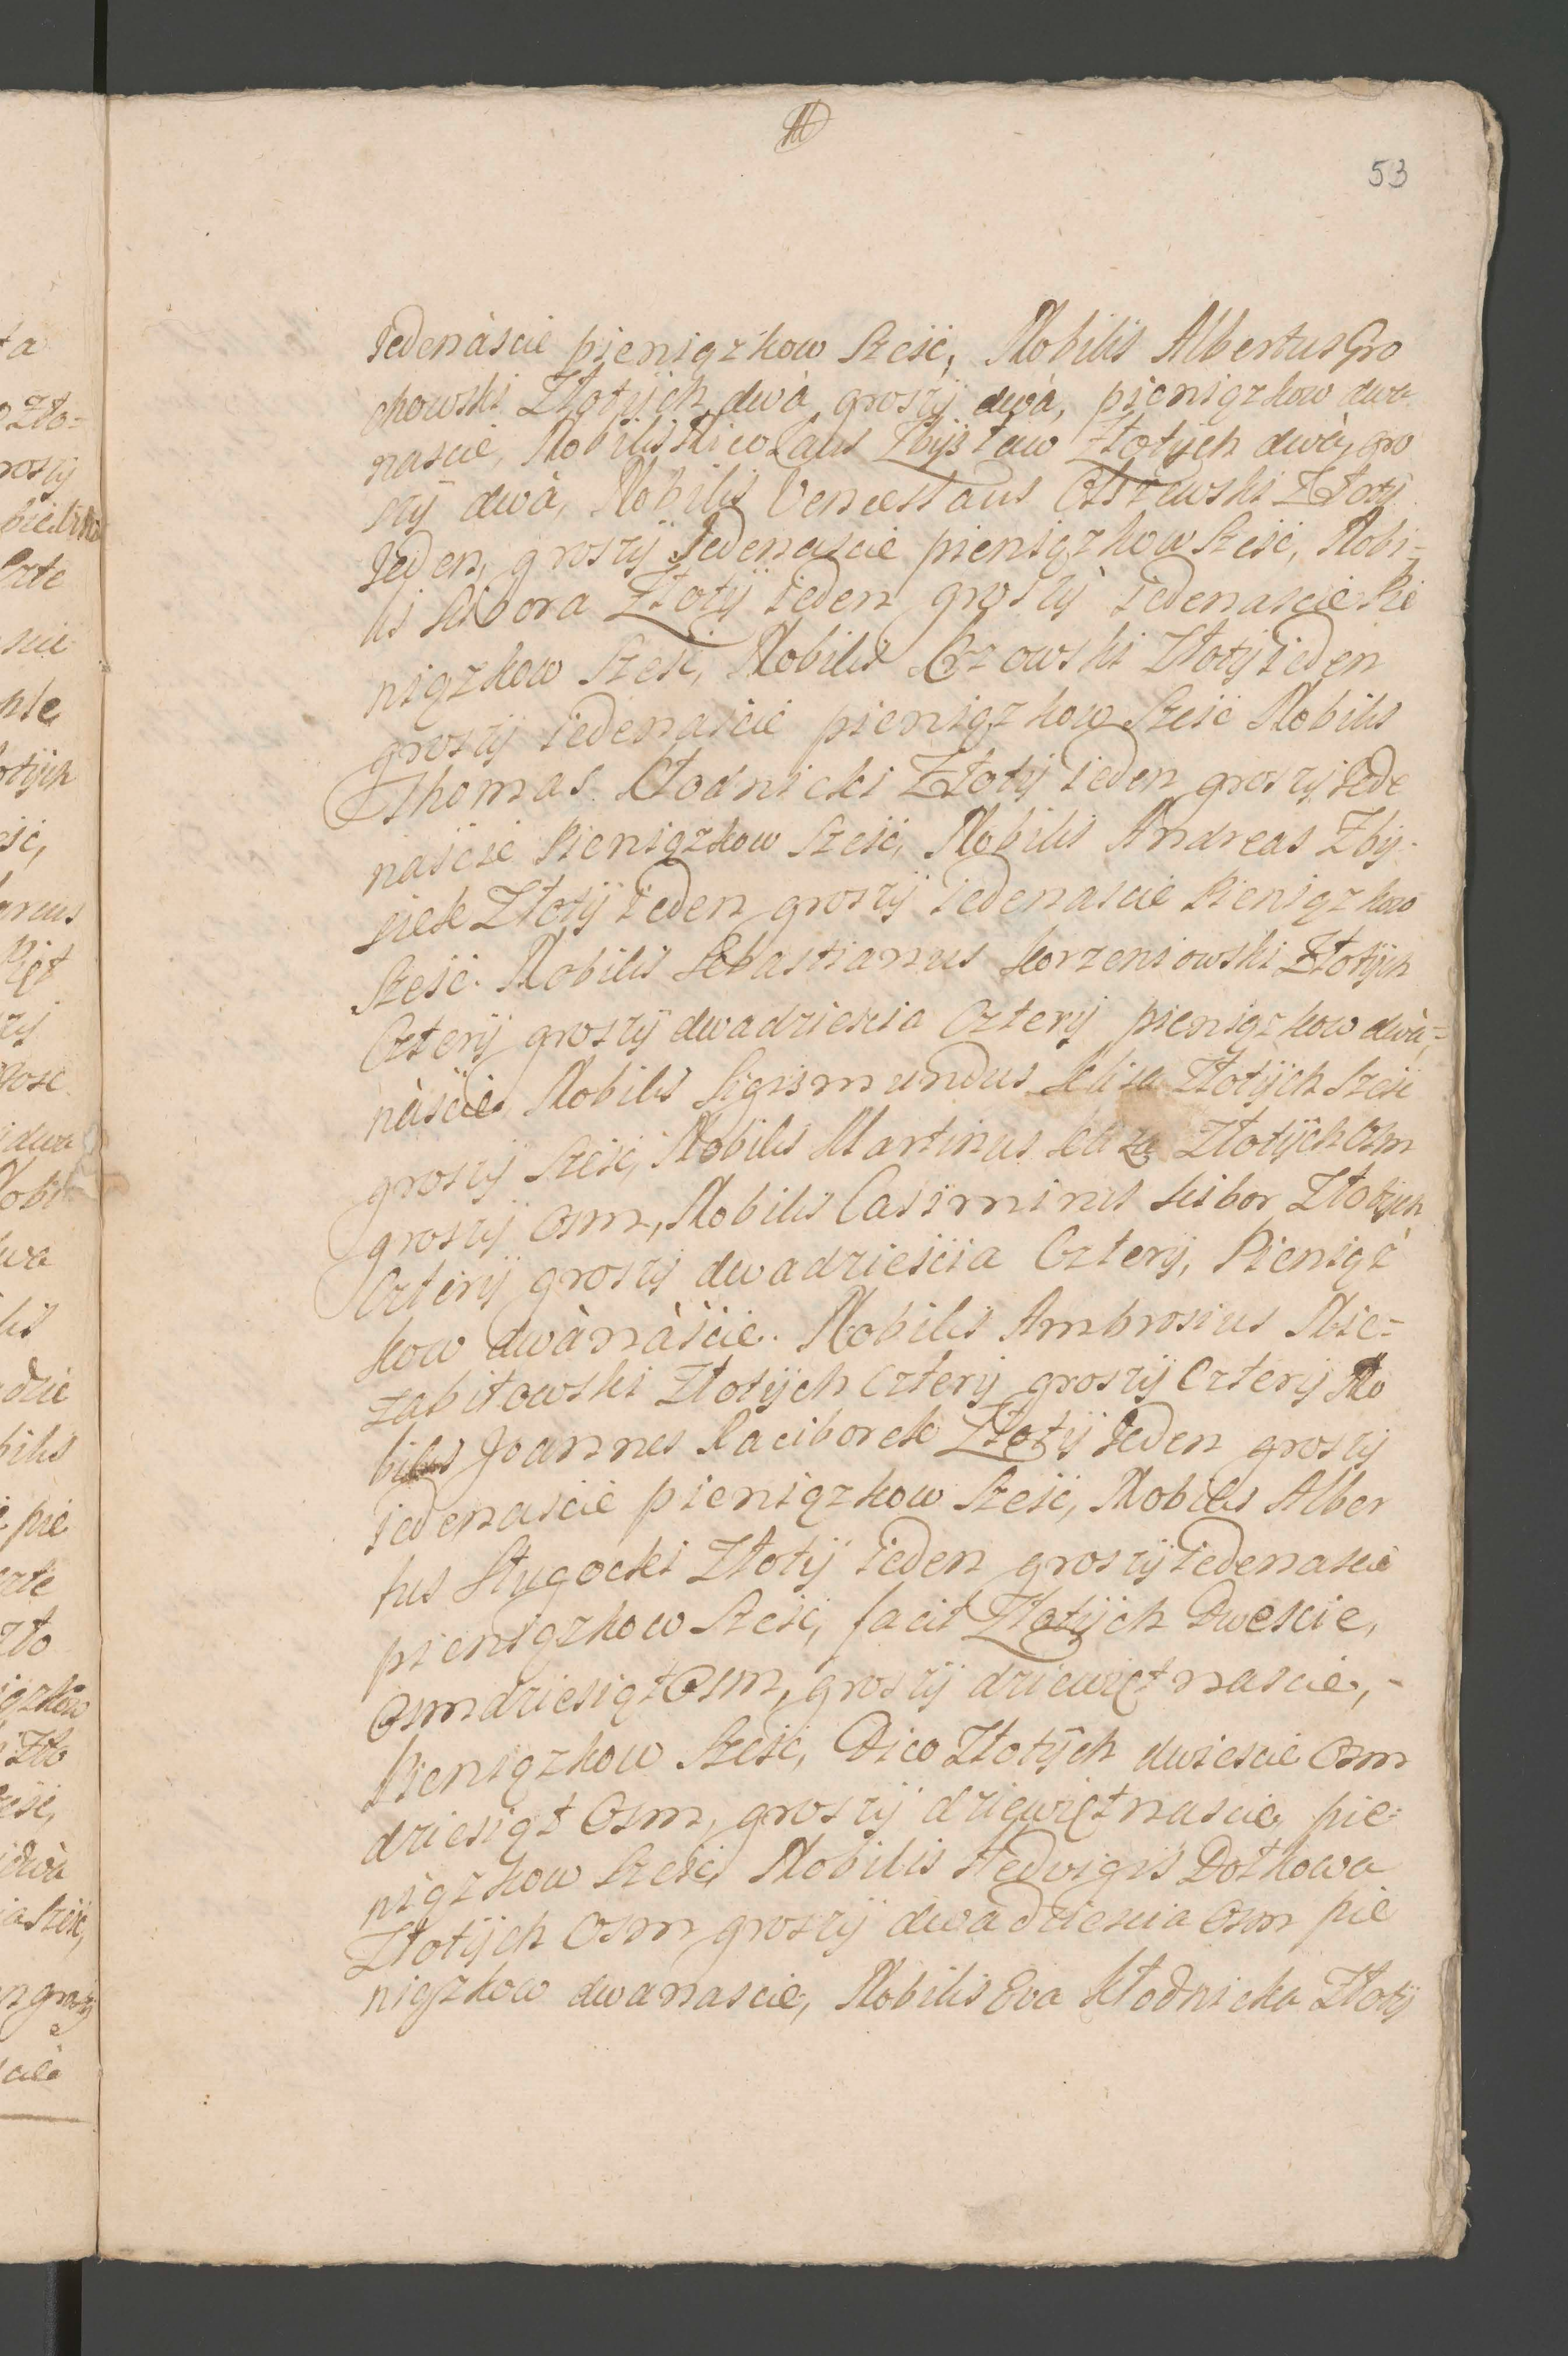 53
Jedenàscie pieniązkow szesć, Nobilis Albertus Gro
chowski Złotÿch dwà groszÿ dwà, pieniązkow dwa
nascie, Nobilis Nicolaus Zbÿstaw Złotÿch dwà, gro
szÿ dwà, Nobilis Venceslaus Olszewski Złotÿ
Jeden, groszÿ Jedenascie pieniązkow szesć, Nobi-
lis Scibora Złotÿ ieden groszÿ iedenascie Pie
niązkow szesć, Nobilis Krzowski Złotÿ ieden
groszÿ iedenascie pieniązkow szesć Nobilis
Thomas Kłodnicki Złotÿ ieden groszÿ Iede
naście Pieniązkow szesć, Nobilis Andreas Zbÿ-
siek Złotÿ ieden groszÿ iedenascie Pieniązkow
szesć. Nobilis Sebastianus Korzeniowski Złotÿch
Czterÿ groszÿ dwadziescia Czterÿ pieniązkow dwà-
nàście, Nobilis Sigismundus Kliza Złotÿch szesć
groszÿ szesć, Nobilis Martinus Kliza Złotÿch osm
groszÿ osm, Nobilis Casimirus Scibor Złotÿch
Czterÿ groszÿ dwadzieścia Czterÿ, Pieniąz
kow dwànàście. Nobilis Ambrosius Nie-
zabitowski Złotÿch Czterÿ groszÿ Czterÿ No
bilis Joannes Raciborek Złotÿ Jeden groszÿ
iedenascie pieniązkow szesć, Nobilis Alber
tus Sługocki Złotÿ ieden groszÿ iedenascie
pieniązkow szesć, facit Złotÿch Dwescie,
Osmdziesiąt Osm, groszÿ dziewiętnascie,-
Pieniązkow szesć, Dico Złotÿch dwiescie Osm
dziesiąt Osm, groszÿ dziewiętnascie, pie-
niązkow szesć, Nobilis Hedvigis Dołhowa
Złotÿch Osm groszÿ dwadziescia Osm pie
niązkow dwanascie, Nobilis Eva Kłodnicka Złotÿ